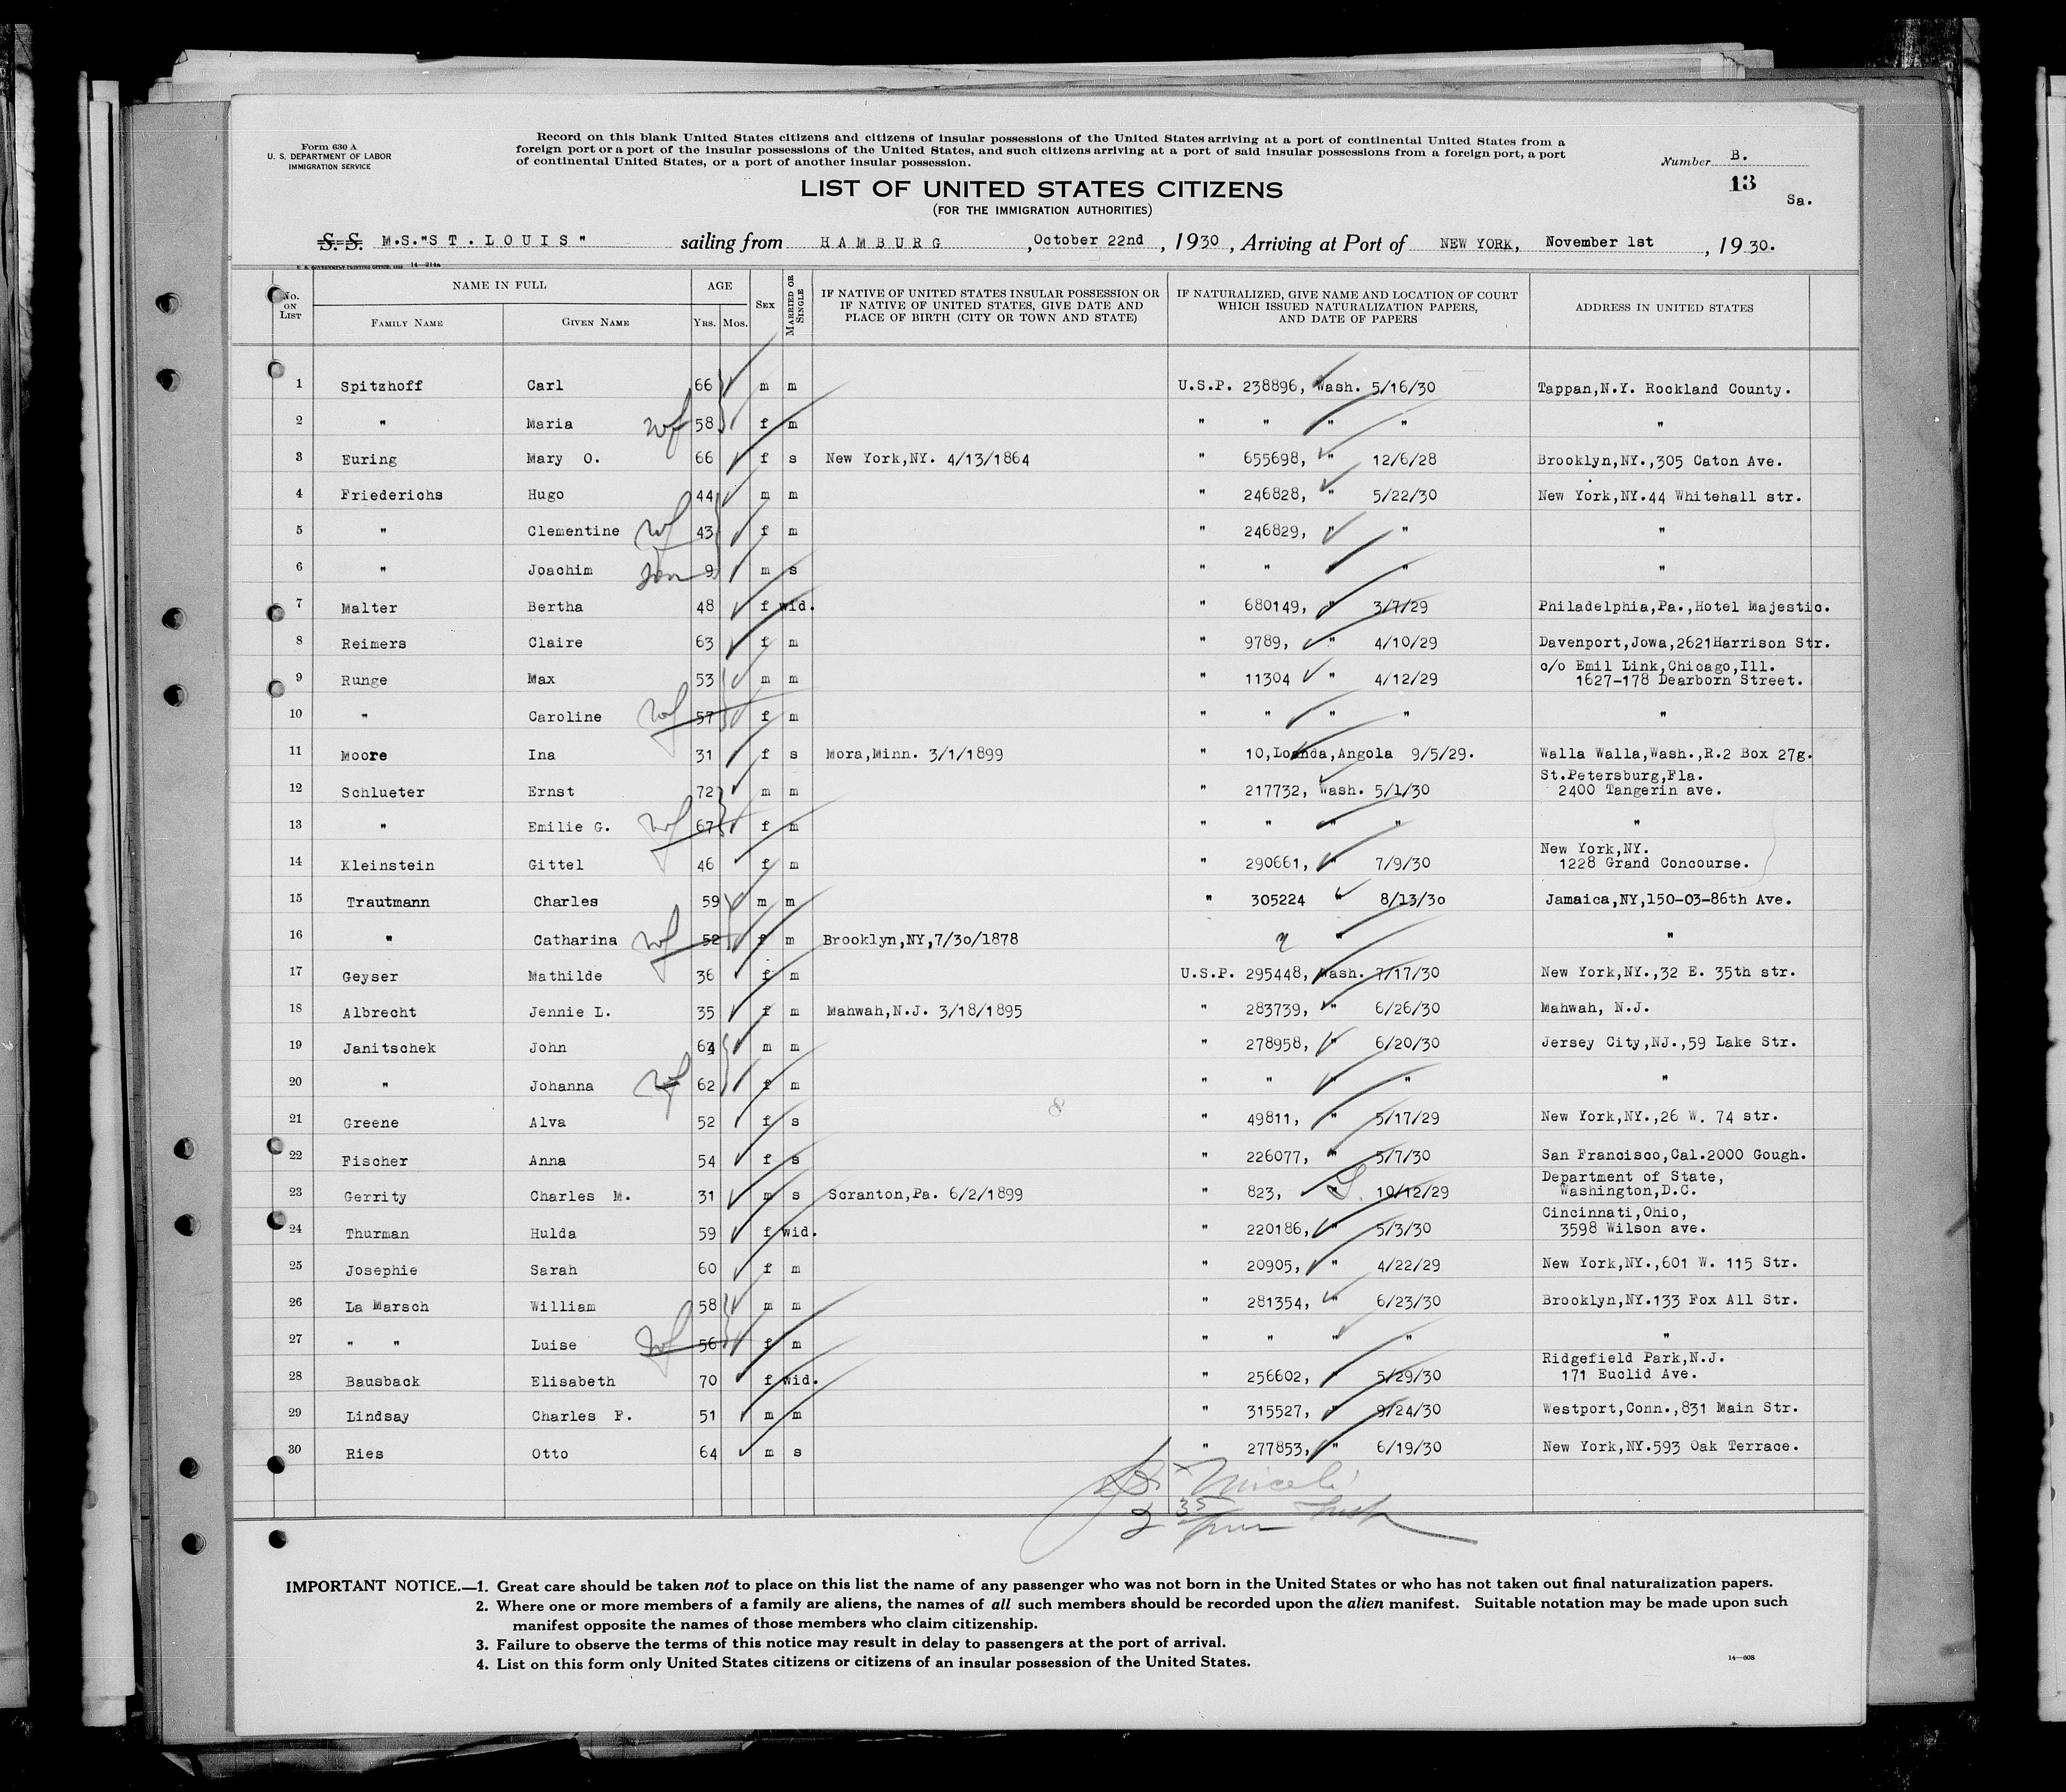 Form 630 A
U. S. DEPARTMENT OF LABOR
IMMIGRATION SERVICE
Record on this blank United States citizens and citizens of insular possessions of the United States arriving at a port of continental United States from a
foreign port or a port of the insular possessions of the United States, and such citizens arriving at a port of said insular possessions from a foreign port, a port
of continental United States, or a port of another insular possession.
Number B.
13
Sa.
LIST OF UNITED STATES CITIZENS
(FOR THE IMMIGRATION AUTHORITIES)
S. S. M.S."ST.LOUIS" sailing from HAMBURG, October 22nd, 1930, Arriving at Port of NEW YORK, November 1st, 1930.
14—214a
No. ON LIST
NAME IN FULL
FAMILY NAME
GIVEN NAME
AGE
YRS. MOS.
SEX
MARRIED OR SINGLE
IF NATIVE OF UNITED STATES INSULAR POSSESSION OR
IF NATIVE OF UNITED STATES, GIVE DATE AND
PLACE OF BIRTH (CITY OR TOWN AND STATE)
IF NATURALIZED, GIVE NAME AND LOCATION OF COURT
WHICH ISSUED NATURALIZATION PAPERS,
AND DATE OF PAPERS
ADDRESS IN UNITED STATES
1 Spitzhoff Carl 66 m m U.S.P. 238896, Wash. 5/16/30 Tappan,N.Y. Rockland County.
2 " Maria wf 58 f m " " " " "
3 Euring Mary O. 66 f s New York,NY. 4/13/1864 " 655698, " 12/6/28 Brooklyn,NY.,305 Caton Ave.
4 Friederichs Hugo 44 m m " 246828, " 5/22/30 New York,NY.44 Whitehall str.
5 " Clementine wf 43 f m " 246829, " " "
6 " Joachim son 9 m s " " " " "
7 Malter Bertha 48 f wid. " 680149, " 3/7/29 Philadelphia,Pa.,Hotel Majestic.
8 Reimers Claire 63 f m " 9789, " 4/10/29 Davenport,Jowa,2621Harrison Str.
9 Runge Max 53 m m " 11304 " 4/12/29 c/o Emil Link,Chicago,Ill.
1627-178 Dearborn Street.
10 " Caroline wf 57 f m " " " " "
11 Moore Ina 31 f s Mora,Minn. 3/1/1899 " 10,Loanda,Angola 9/5/29. Walla Walla,Wash.,R.2 Box 27g.
12 Schlueter Ernst 72 m m " 217732, Wash. 5/1/30 St.Petersburg,Fla.
2400 Tangerin ave.
13 " Emilie G. wf 67 f m " " " " "
14 Kleinstein Gittel 46 f m " 290661, " 7/9/30 New York,NY.
1228 Grand Concourse.
15 Trautmann Charles 59 m m " 305224 " 8/13/30 Jamaica,NY,150-03-86th Ave.
16 " Catharina wf 52 f m Brooklyn,NY,7/30/1878 " "
17 Geyser Mathilde 36 f m U.S.P. 295448, Wash. 7/17/30 New York,NY.,32 E. 35th str.
18 Albrecht Jennie L. 35 f m Mahwah,N.J. 3/18/1895 " 283739, " 6/26/30 Mahwah, N.J.
19 Janitschek John 64 m m " 278958, " 6/20/30 Jersey City,NJ.,59 Lake Str.
20 " Johanna wf 62 f m " " " " "
21 Greene Alva 52 f s " 49811, " 5/17/29 New York,NY.,26 W. 74 str.
22 Fischer Anna 54 f s " 226077, " 5/7/30 San Francisco,Cal.2000 Gough.
23 Gerrity Charles M. 31 m s Scranton,Pa. 6/2/1899 " 823, " 10/12/29 Department of State,
Washington,D.C.
24 Thurman Hulda 59 f wid. " 220186, " 5/3/30 Cincinnati,Ohio,
3598 Wilson ave.
25 Josephie Sarah 60 f m " 20905, " 4/22/29 New York,NY.,601 W. 115 Str.
26 La Marsch William 58 m m " 281354, " 6/23/30 Brooklyn,NY.133 Fox All Str.
27 " " Luise wf 56 f m " " " " "
28 Bausback Elisabeth 70 f wid. " 256602, " 5/29/30 Ridgefield Park,N.J.
171 Euclid Ave.
29 Lindsay Charles F. 51 m m " 315527, " 9/24/30 Westport,Conn.,831 Main Str.
30 Ries Otto 64 m s " 277853, " 6/19/30 New York,NY.593 Oak Terrace.
IMPORTANT NOTICE.—1. Great care should be taken not to place on this list the name of any passenger who was not born in the United States or who has not taken out final naturalization papers.
2. Where one or more members of a family are aliens, the names of all such members should be recorded upon the alien manifest. Suitable notation may be made upon such
manifest opposite the names of those members who claim citizenship.
3. Failure to observe the terms of this notice may result in delay to passengers at the port of arrival.
4. List on this form only United States citizens or citizens of an insular possession of the United States.
14—608